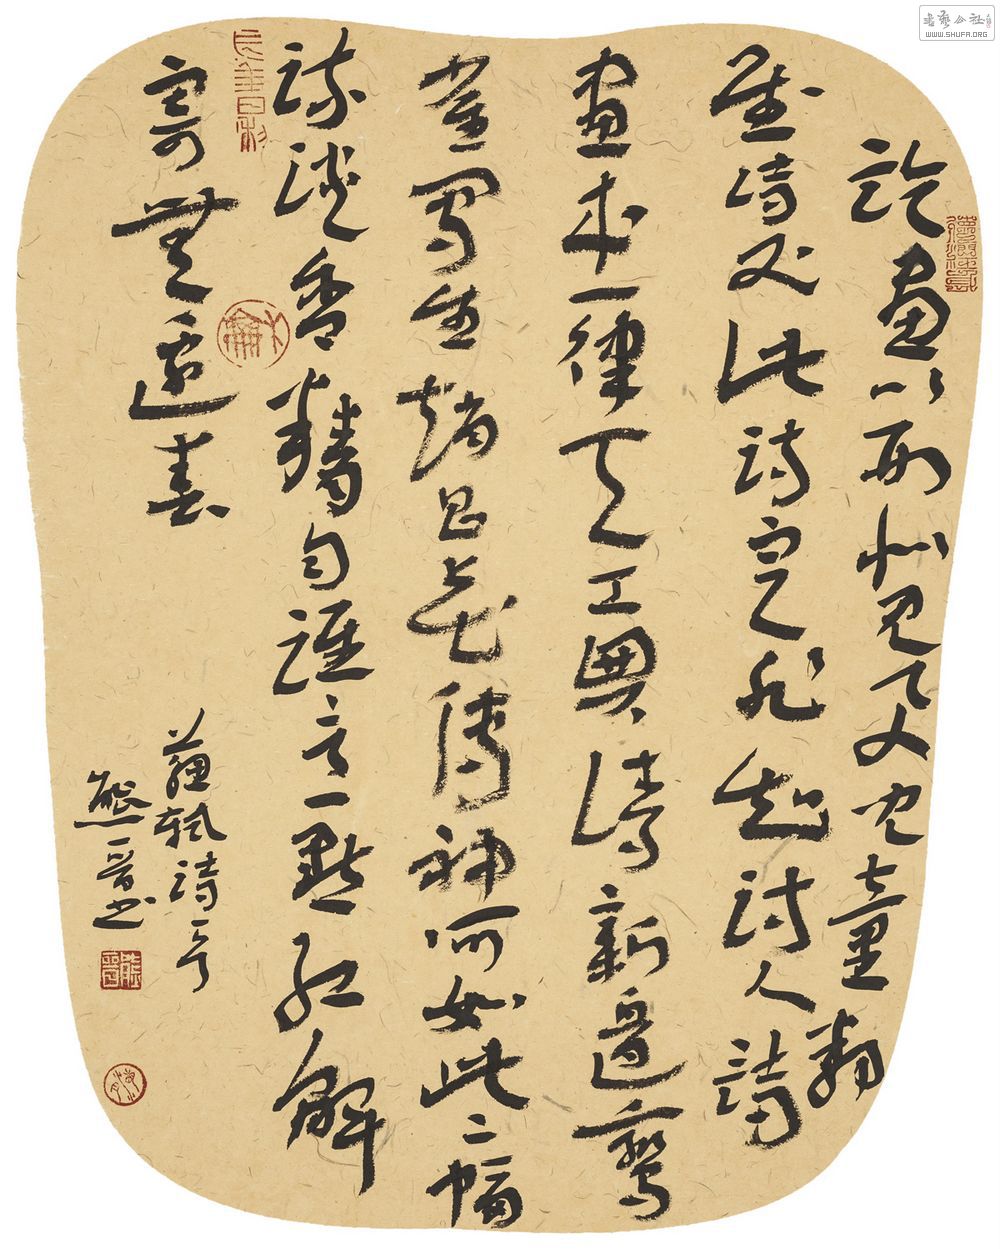 論畫以形似見与兒童鄰
賦詩必此詩定非知詩人詩
畫本一律天工與清新邊鸞
雀寫生趙昌花傳神何如此二幅
疏澹含精勻誰言一點紅解
寄無邊春
蘇軾詩一首
熊晉书
書藝公社
WWW.SHUFA.ORG